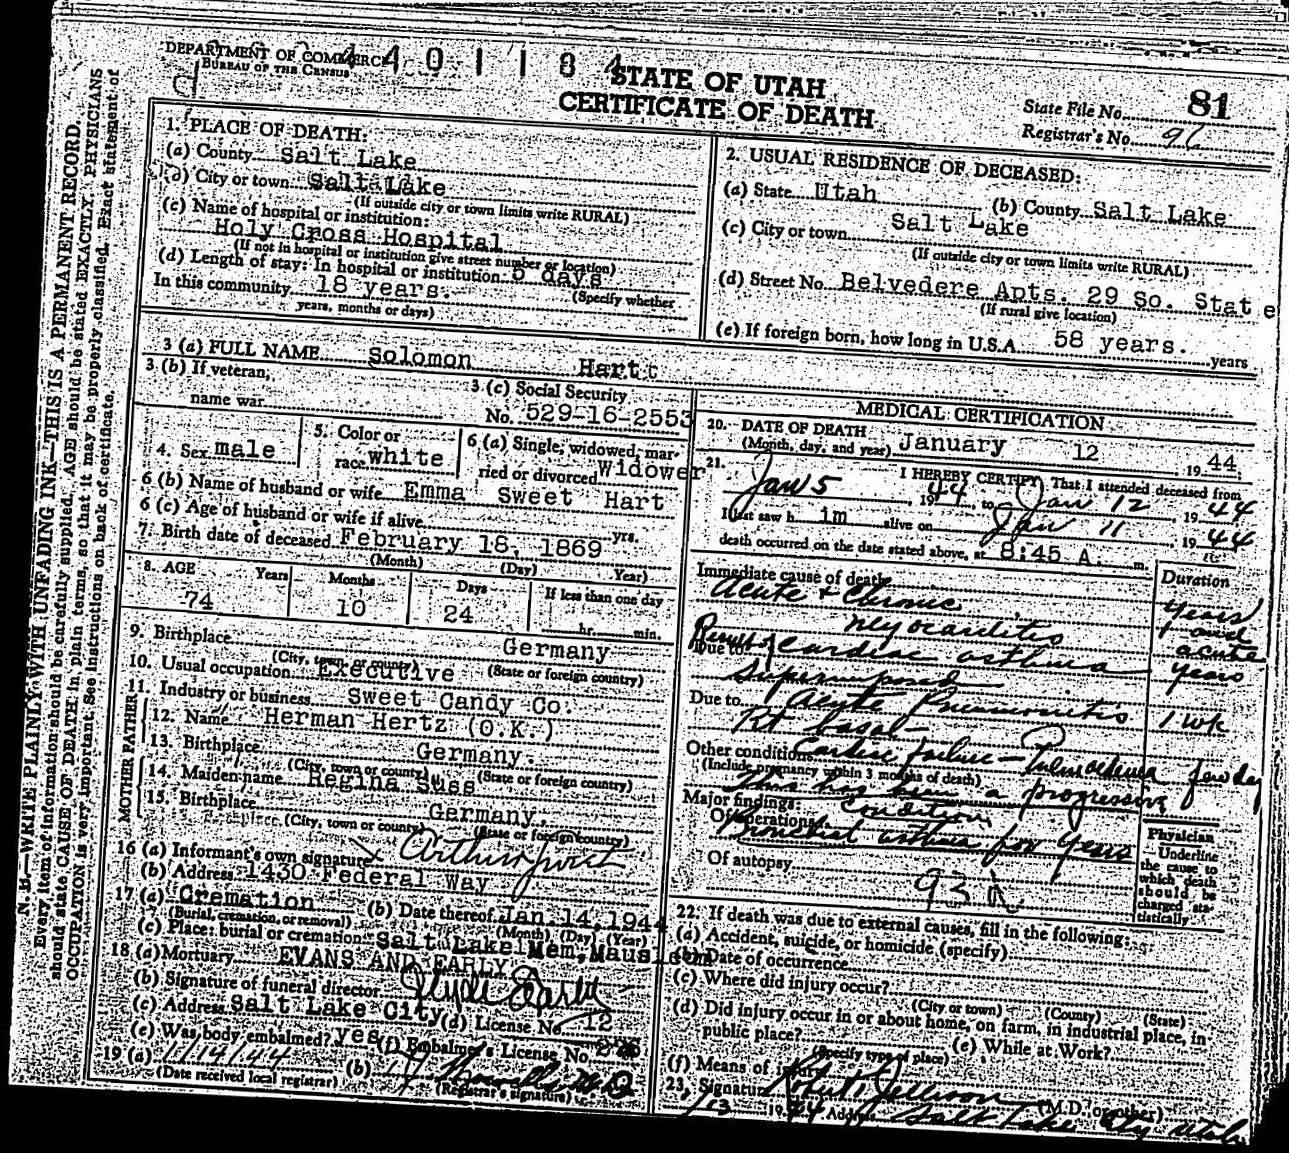 DEPARTMENT OF COMMERCE
BUREAU OF THE CENSUS
STATE OF UTAH
CERTIFICATE OF DEATH
State File No. 81
Registrar's No. 96
N. B.—WRITE PLAINLY WITH UNFADING INK—THIS IS A PERMANENT RECORD.
Every item of information should be carefully supplied. AGE should be stated EXACTLY. PHYSICIANS
should state CAUSE OF DEATH in plain terms, so that it may be properly classified. Exact statement of
OCCUPATION is very important. See instructions on back of certificate.
1. PLACE OF DEATH:
(a) County Salt Lake
City or town Salt Lake
(If outside city or town limits write RURAL)
(c) Name of hospital or institution:
Holy Cross Hospital
(If not in hospital or institution give street number or location)
(d) Length of stay: In hospital or institution 5 days
(Specify whether
In this community 18 years.
years, months or days)
2. USUAL RESIDENCE OF DECEASED:
(a) State Utah (b) County Salt Lake
(c) City or town Salt Lake
(If outside city or town limits write RURAL)
(d) Street No. Belvedere Apts. 29 So. State
(If rural give location)
(e) If foreign born, how long in U.S.A. 58 years. years
3 (a) FULL NAME Solomon Hart
3 (b) If veteran,
name war
3 (c) Social Security
No. 529-16-2553
4. Sex male
5. Color or
race white
6 (a) Single, widowed, mar-
ried or divorced Widower
6 (b) Name of husband or wife Emma Sweet Hart
6 (c) Age of husband or wife if alive yrs.
7. Birth date of deceased February 18, 1869
(Month) (Day) Year)
8. AGE Years Months Days If less than one day
74 10 24 hr. min.
9. Birthplace Germany
(City, town, or county) (State or foreign country)
10. Usual occupation Executive
11. Industry or business Sweet Candy Co.
MOTHER FATHER
12. Name Herman Hertz (O.K.)
13. Birthplace Germany.
(City, town or county) (State or foreign country)
14. Maiden name Regina Suss
15. Birthplace Germany.
(City, town or county) (State or foreign country)
16 (a) Informant's own signature
(b) Address 1430 Federal Way
17 (a) Cremation (b) Date thereof Jan. 14, 1944
(Burial, cremation, or removal) (Month) (Day) (Year)
(c) Place: burial or cremation Salt Lake Mem. Mausleum
18 (a) Mortuary EVANS AND EARLY
(b) Signature of funeral director Clyde Early
(c) Address Salt Lake City (d) License No. 12
(e) Was body embalmed? yes (f) Embalmer's License No.
19 (a) 1/14/44 (b)
(Date received local registrar) (Registrar's signature)
MEDICAL CERTIFICATION
20. DATE OF DEATH
(Month, day, and year) January 12, 1944.
21. I HEREBY CERTIFY That I attended deceased from
Jan 5, 1944, to Jan 12, 1944
I last saw him alive on Jan 11, 1944
death occurred on the date stated above, at 8:45 A. m.
Immediate cause of death Duration
Acute & Chronic years
myocarditis and
acute
Due to cardiac asthma years
Superimposed
Due to Acute Pneumonitis 1 wk
Rt basal
Other conditions Cardiac failure — Pulm oedema few day
(Include pregnancy within 3 months of death)
This has been a progressive
Major findings: Condition
Of operations
Bronchial asthma for years
Of autopsy
Physician
Underline
the cause to
which death
should be
charged sta-
tistically
22. If death was due to external causes, fill in the following:
(a) Accident, suicide, or homicide (specify)
Date of occurrence
(c) Where did injury occur?
(City or town) (County) (State)
(d) Did injury occur in or about home, on farm, in industrial place, in
public place? (e) While at Work?
(Specify type of place)
(f) Means of injury
23. Signature (M.D. or other)
1/13 1944 Address Salt Lake City Utah